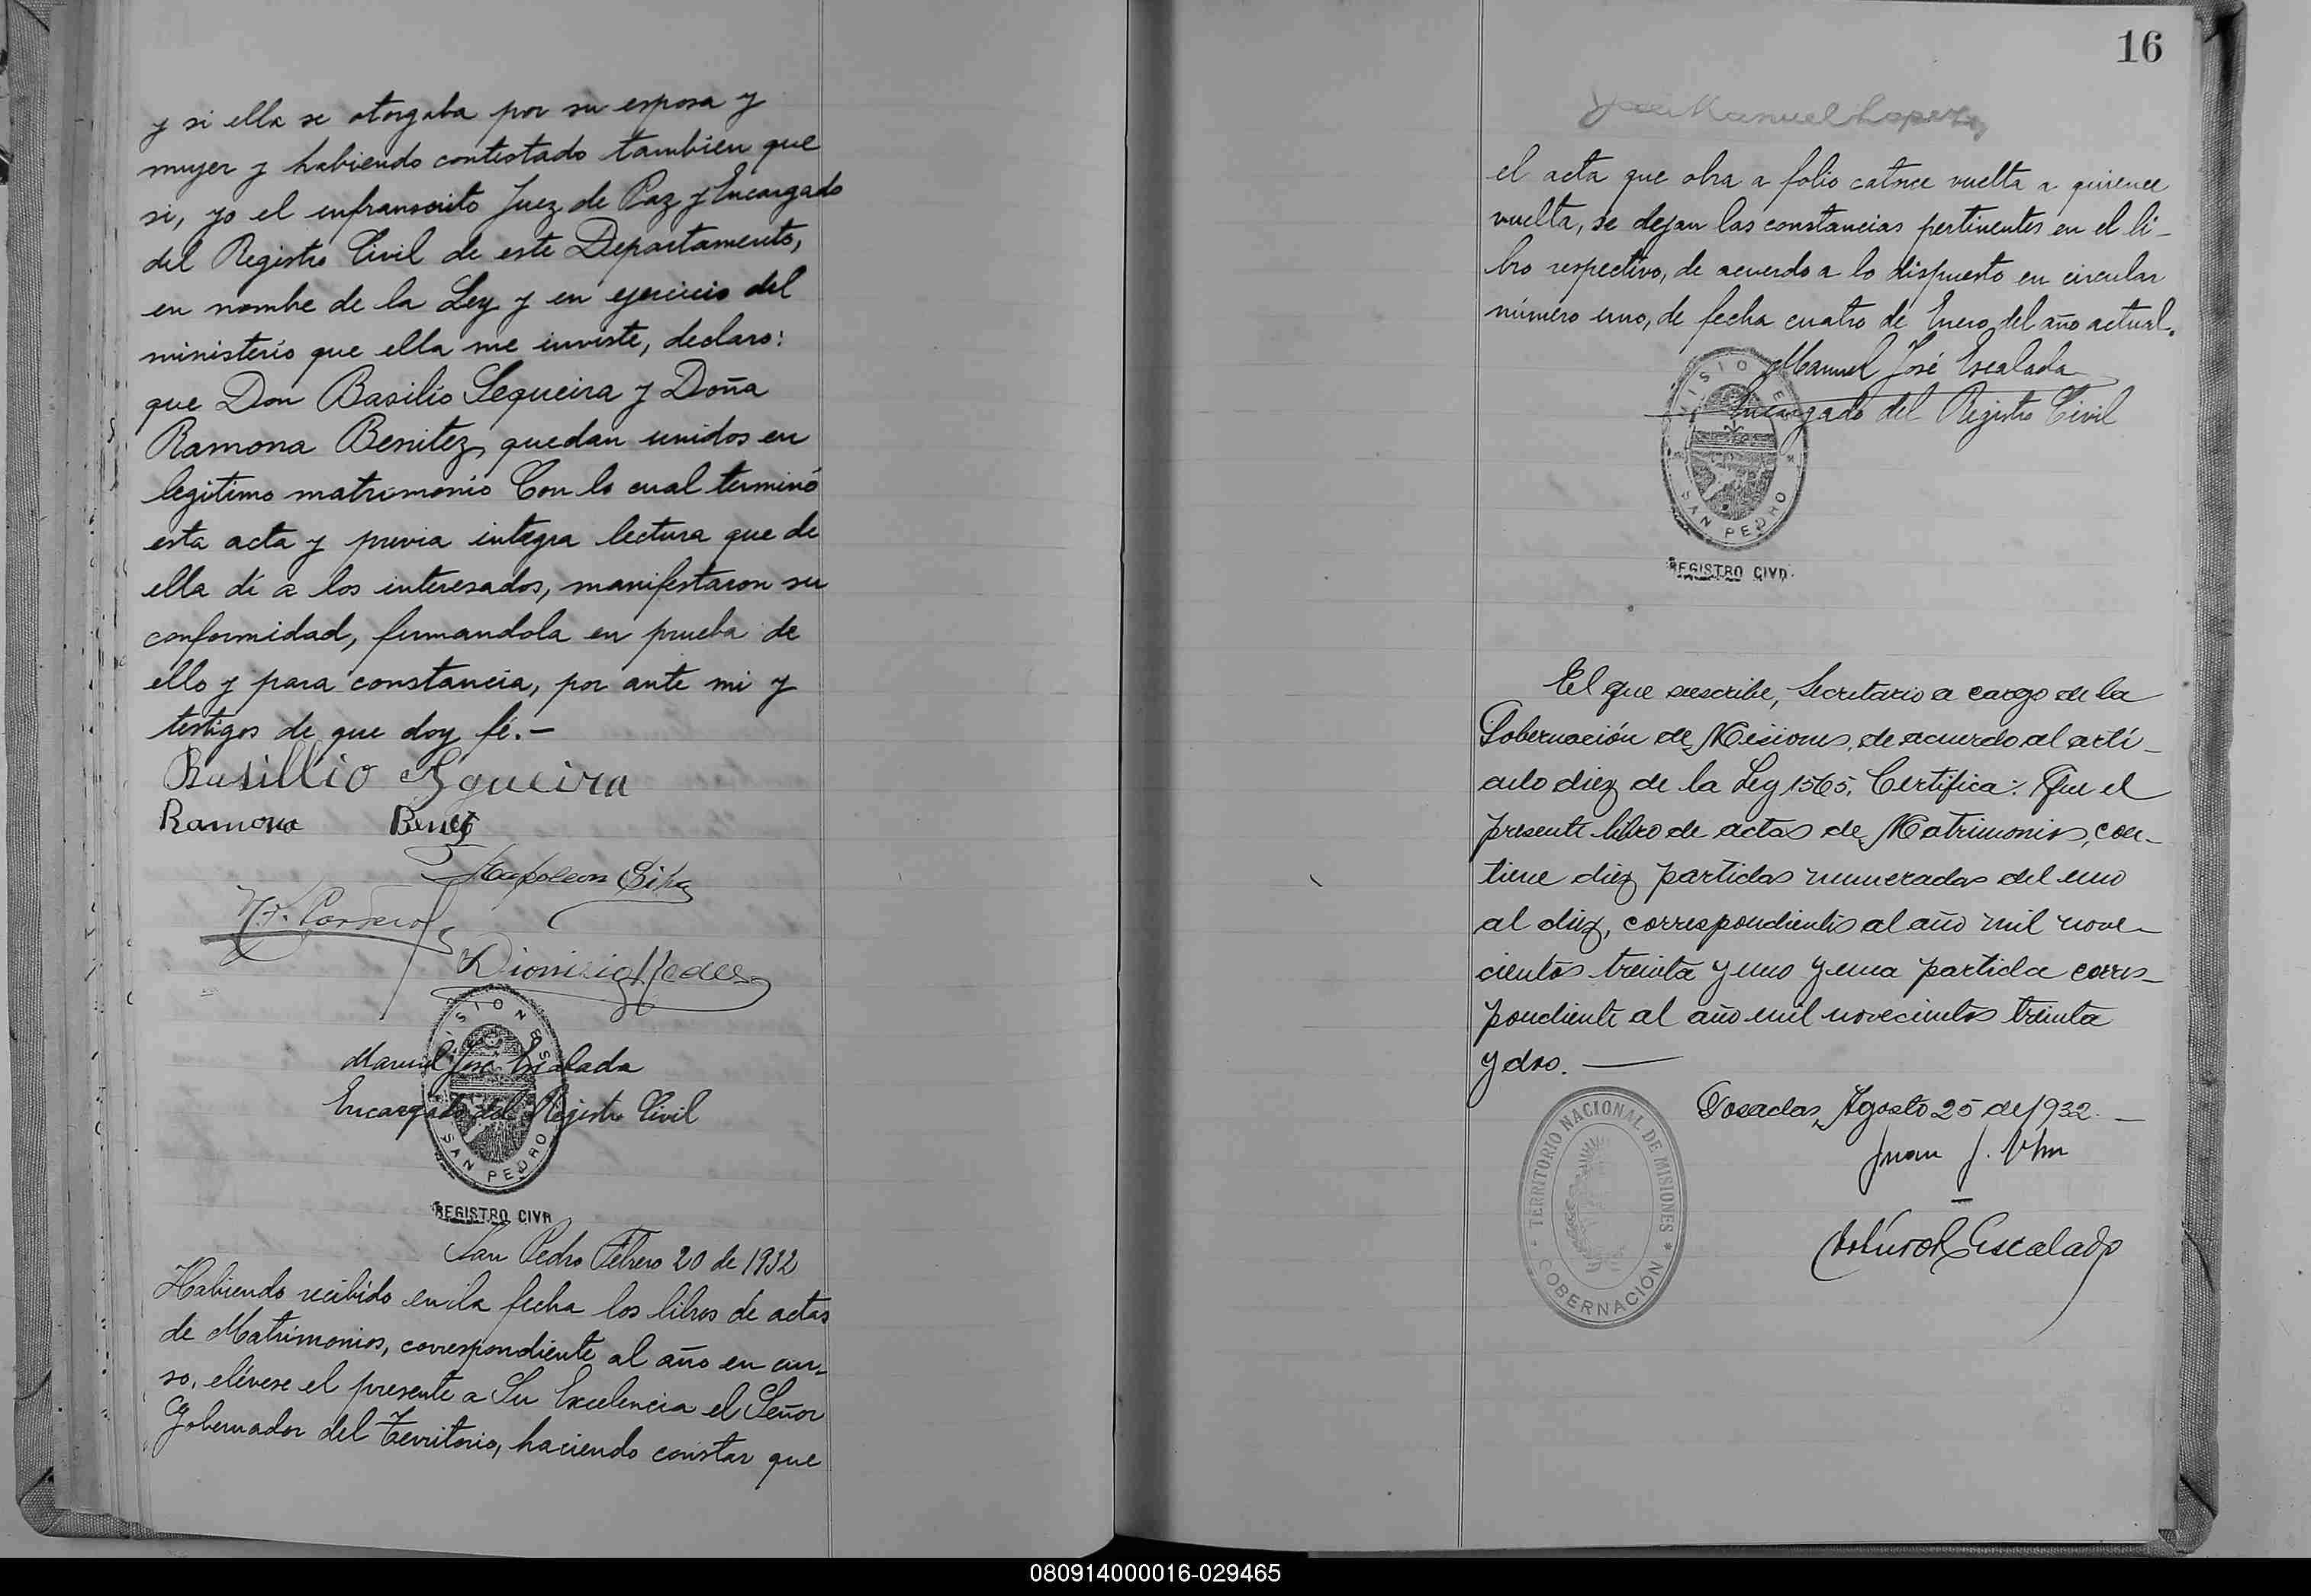 y si ella se otorgaba por su esposa y
mujer y habiendo contestado tambien que
si, yo el infranscrito Juez de Paz y Encargado
del Registro Civil de este Departamento,
en nombre de la Ley y en ejercicio del
ministerio que ella me inviste, declaro:
que Don Basilio Sequeira y Doña
Ramona Benitez, quedan unidos en
legitimo matrimonio Con lo cual terminó
esta acta y previa integra lectura que de
ella dí a los interesados, manifestaron su
conformidad, firmandola en prueba de
ello y para constancia, por ante mi y
testigos de que doy fé.-
Basillio Sgueira
Ramona
Napoleon Silva
Dionisio
MISIONES
Manuel José Escalada
Encargado del Registro Civil
SAN PEDRO
REGISTRO CIVIL
San Pedro Febrero 20 de 1932
Habiendo recibido en la fecha los libros de actas
de Matrimonios, correspondiente al año en cur-
so, elévese el presente a Su Excelencia el Señor
Gobernador del Territorio, haciendo constar que
16
Manuel Lopez
el acta que obra a folio catorce vuelta a quince
vuelta, se dejan las constancias pertinentes en el li-
bro respectivo, de acuerdo a lo dispuesto en circular
número uno, de fecha cuatro de Enero del año actual.
Manuel José Escalada
Encargado del Registro Civil
MISIONES
SAN PEDRO
REGISTRO CIVIL
El que suscribe, Secretario a cargo de la
Gobernación de Misiones, de acuerdo al artí-
culo diez de la Ley 1565, Certifica: Que el
presente libro de actas de Matrimonios, con-
tiene diez partidas numeradas del uno
al diez, correspondientes al año mil nove-
cientos treinta y uno y una partida corres-
pondiente al año mil novecientos treinta
y dos.
Posadas, Agosto 25 de 1932.
Juan J.
Escalada
TERRITORIO NACIONAL DE MISIONES
GOBERNACIÓN
080914000016-029465